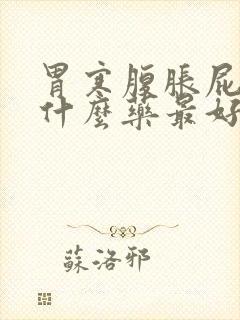 胃寒腹脹屁
什麼藥最好
蘇洛邪